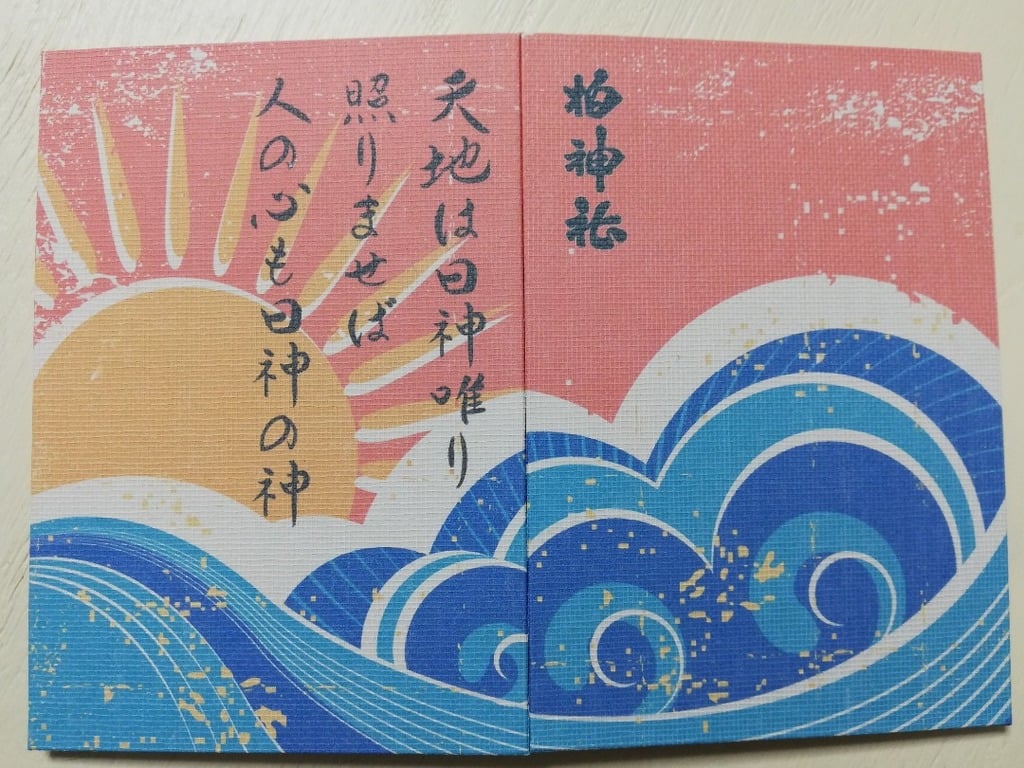 柏神社
天地は日神唯り
照りませば
人の心も日神の神